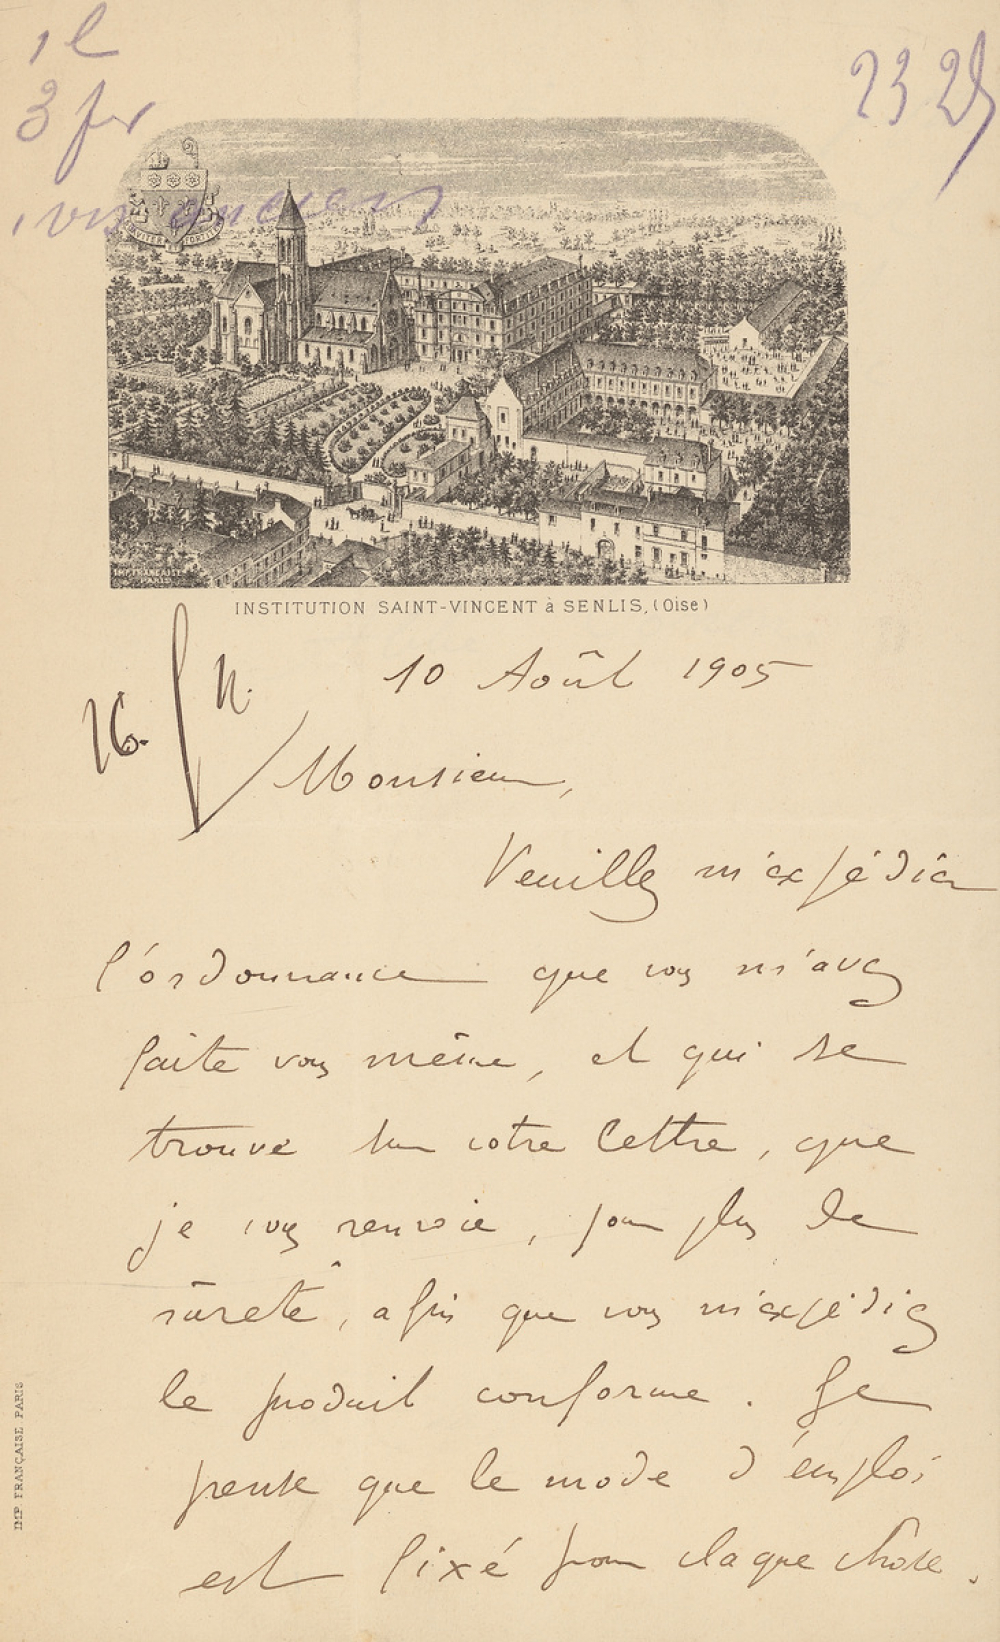 1 l
3 fr
23 25
IMP. FRANÇAISE
PARIS
INSTITUTION SAINT-VINCENT à SENLIS, (Oise)
10 Août 1905
Monsieur,
Veuillez m'expédier
l'ordonnance que vous m'avez
faite vous même, et qui se
trouve sur votre lettre, que
je vous renvoie, pour plus de
sûreté, afin que vous m'expédiez
le produit conforme. Je
pense que le mode d'emploi
est fixé pour chaque chose.
IMP. FRANÇAISE PARIS